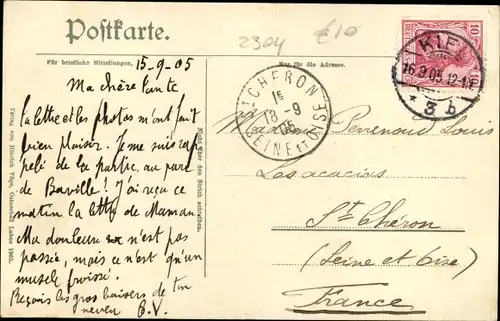 Postkarte.
2304 £10
Für briefliche Mitteilungen,
Nur für die Adresse.
15-9-05
Ma chère tante
la lettre et les photos m'ont fait
bien plaisir. Je me suis rap-
pelé de la partie, au parc
de Baville! J'ai reçu ce
matin la lettre de Maman
Ma douleur n'est pas
passée, mais ce n'est qu'un
muscle froissé.
Reçois les gros baisers de ton
neveu B.V.
Nicht über den Strich schreiben.
Verlag von Hinrich
10
KIEL
16.9.05.12-1
* 3 b
ST CHERON
1E
18-9
05
SEINE ET OISE
Madame Louis
Les acacias
St Chéron
(Seine et Oise)
France